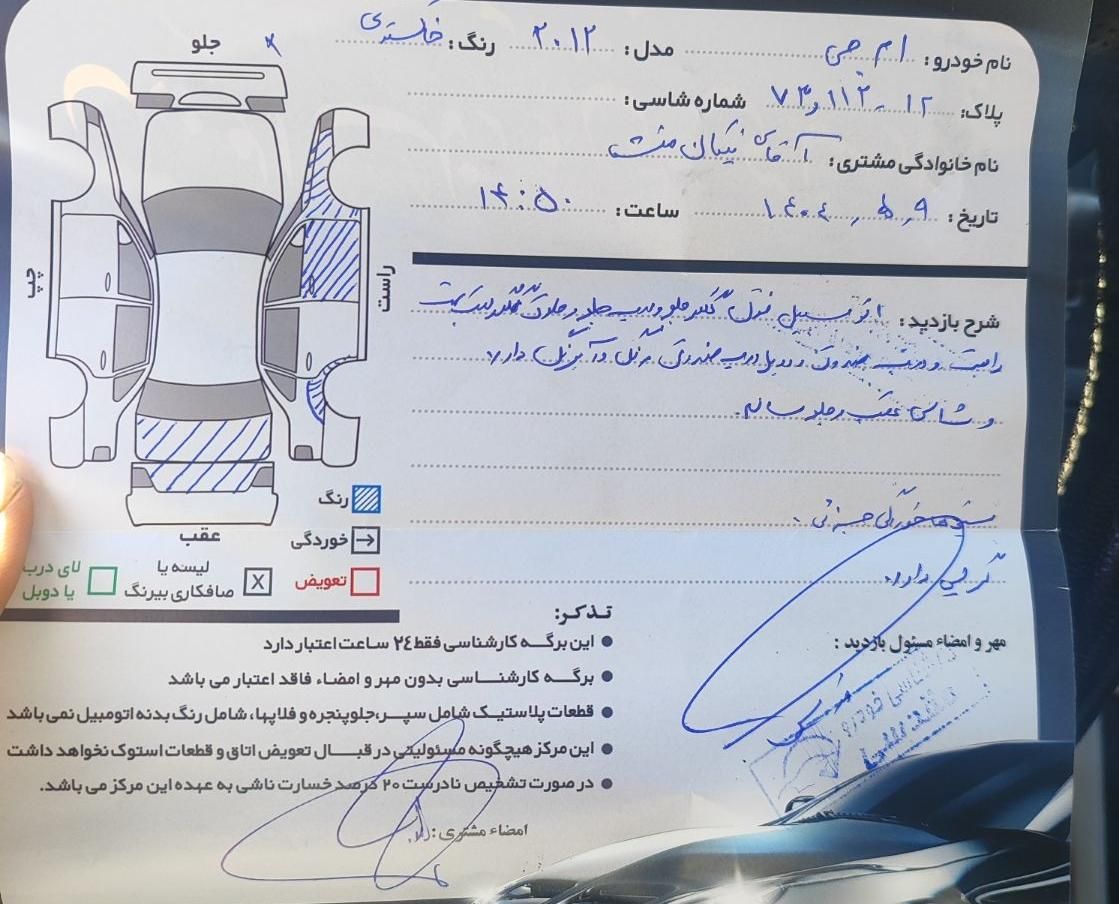 نام خودرو: ام جی مدل: ۲۰۱۲ رنگ: خاکستری
پلاک: ۱۲ - ۱۱۲ و ۷۳ شماره شاسی:
نام خانوادگی مشتری: آقای نیکان منش
تاریخ: ۱۴۰۴ , ۵ , ۹ ساعت: ۱۴:۵۰
شرح بازدید: اتومبیل فوق گلگیر جلو و درب جلو و گلگیر عقب سمت
راست و درب صندوق و رنگ دارد
و شاسی عقب و جلو سالم.
خوردگی جزئی
دارد.
مهر و امضاء مسئول بازدید:
کارشناسی خودرو
جلو
چپ
راست
عقب
رنگ
خوردگی
تعویض
لیسه یا صافکاری بیرنگ
لای درب یا دوبل
تذکر:
● این برگه کارشناسی فقط ۲۴ ساعت اعتبار دارد
● برگه کارشناسی بدون مهر و امضاء فاقد اعتبار می باشد
● قطعات پلاستیک شامل سپر، جلوپنجره و فلاپها، شامل رنگ بدنه اتومبیل نمی باشد
● این مرکز هیچگونه مسئولیتی در قبال تعویض اتاق و قطعات استوک نخواهد داشت
● در صورت تشخیص نادرست ۲۰ درصد خسارت ناشی به عهده این مرکز می باشد.
امضاء مشتری: